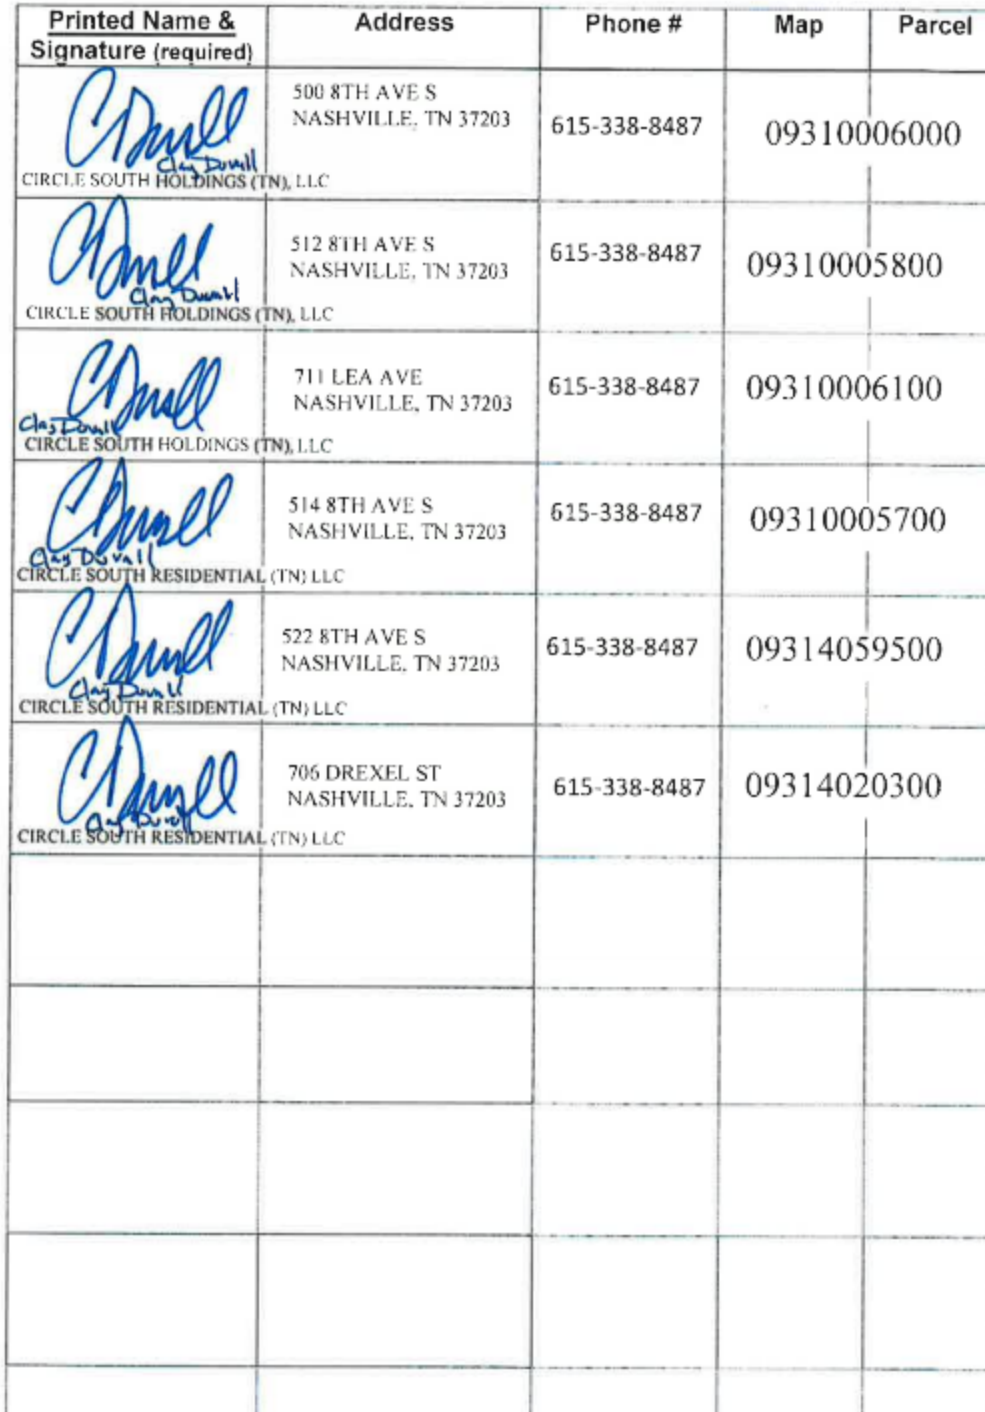 Printed Name &
Signature (required)
Address
Phone #
Map
Parcel
Clay Duvall
CIRCLE SOUTH HOLDINGS (TN), LLC
500 8TH AVE S
NASHVILLE, TN 37203
615-338-8487
09310006000
Clay Duvall
CIRCLE SOUTH HOLDINGS (TN), LLC
512 8TH AVE S
NASHVILLE, TN 37203
615-338-8487
09310005800
Clay Duvall
CIRCLE SOUTH HOLDINGS (TN), LLC
711 LEA AVE
NASHVILLE, TN 37203
615-338-8487
09310006100
Clay Duvall
CIRCLE SOUTH RESIDENTIAL (TN) LLC
514 8TH AVE S
NASHVILLE, TN 37203
615-338-8487
09310005700
Clay Duvall
CIRCLE SOUTH RESIDENTIAL (TN) LLC
522 8TH AVE S
NASHVILLE, TN 37203
615-338-8487
09314059500
Clay Duvall
CIRCLE SOUTH RESIDENTIAL (TN) LLC
706 DREXEL ST
NASHVILLE, TN 37203
615-338-8487
09314020300